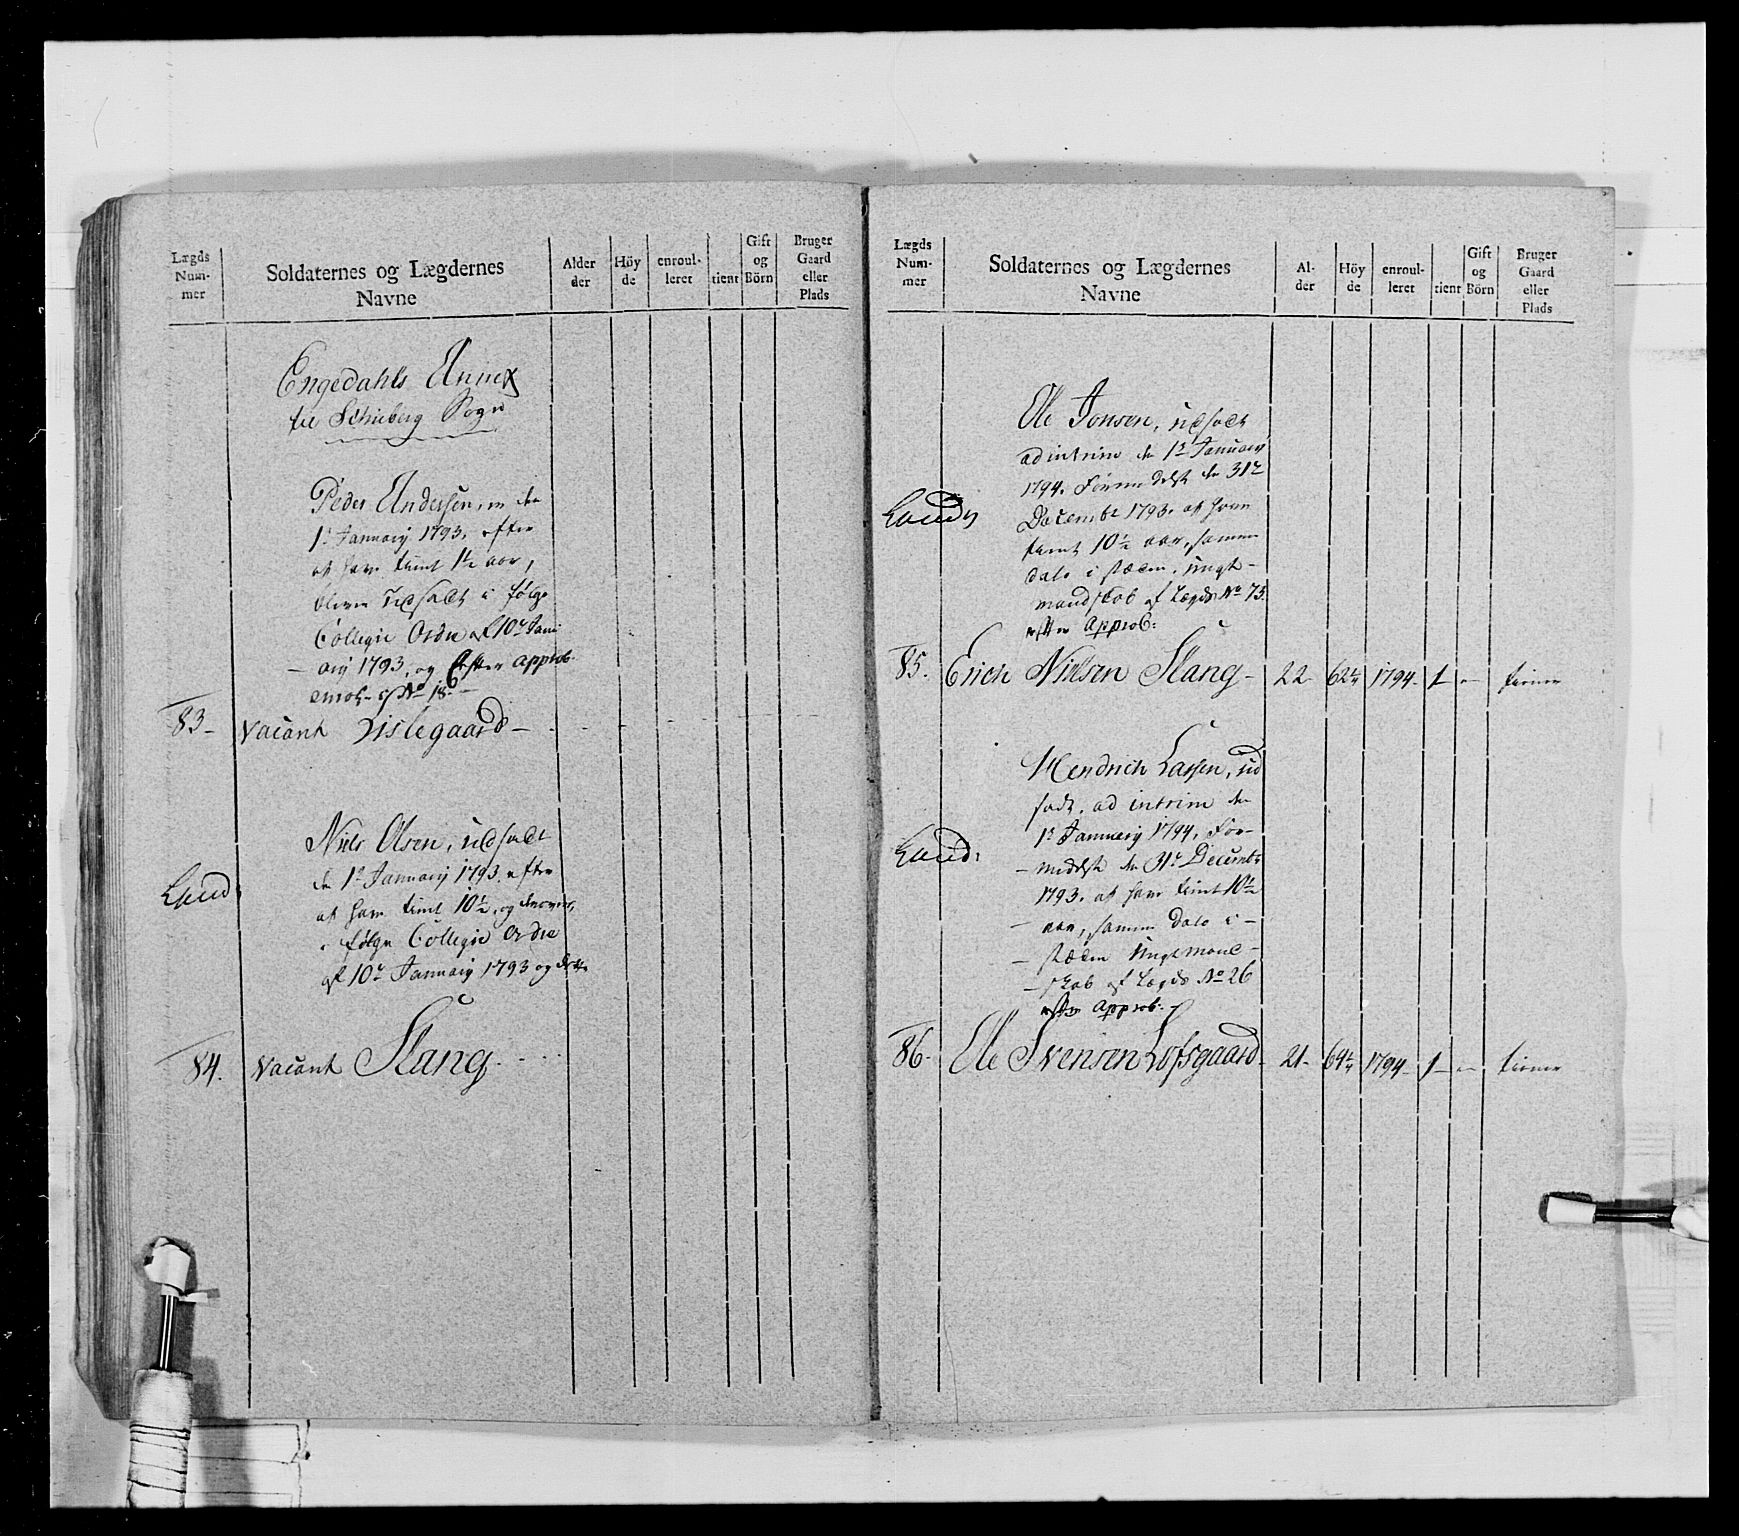 Lægds
Num-
mer
Soldaternes og Lægdernes
Navne
Alder
der
Höy
de
enroul-
leret
tient
Gift
og
Börn
Bruger
Gaard
eller
Plads
Engedahls Annex
til Schieberg Sogn
Peder Andersen, den
1 Januarij 1793, efter
at have tient 1½ aar,
bleven udsadt i følge
Collegie Ordre af 10 Janu
arij 1793, og efter approb.
No 18
83 - Vacant Lislegaard -
Niels Olsen, udsadt
den 1 Januarij 1793 efter
Land
at have tient 10½, og
i følge Collegie Ordre
af 10 Januarij 1793 og
84. Vacant Slang
Lægds
Num-
mer
Soldaternes og Lægdernes
Navne
Al-
der
Höy
de
enroul-
leret
tient
Gift
og
Börn
Bruger
Gaard
eller
Plads
Ole Jonsen, udsadt
ad intrim den 1 Januarij
1794. Formedelst den 31
Land
December 1793. at have
tient 10½ aar, samme
dato i stæden. ungt-
mandskab af Lægds No 73.
efter Approb:
85. Erich Nielsen Slang - 22 - 62 1794 - 1 - tiener
Hendrich Larsen, ud
sadt, ad intrim den
1 Januarij 1794, For-
Land:
medelst den 31 Decembr
1793. at have tient 10½
aar, samme dato i -
stæden Ungtmand-
skab af Lægds No 26
efter Approb:
86 - Ole Svensen Lofsgaard - 21 - 64 1794 - 1 - tiener